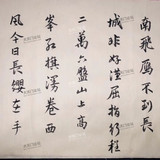 南飛雁不到長
城非好漢屈指行程
二萬六盤山上高
峯紅旗漫卷西
風今日長纓在手